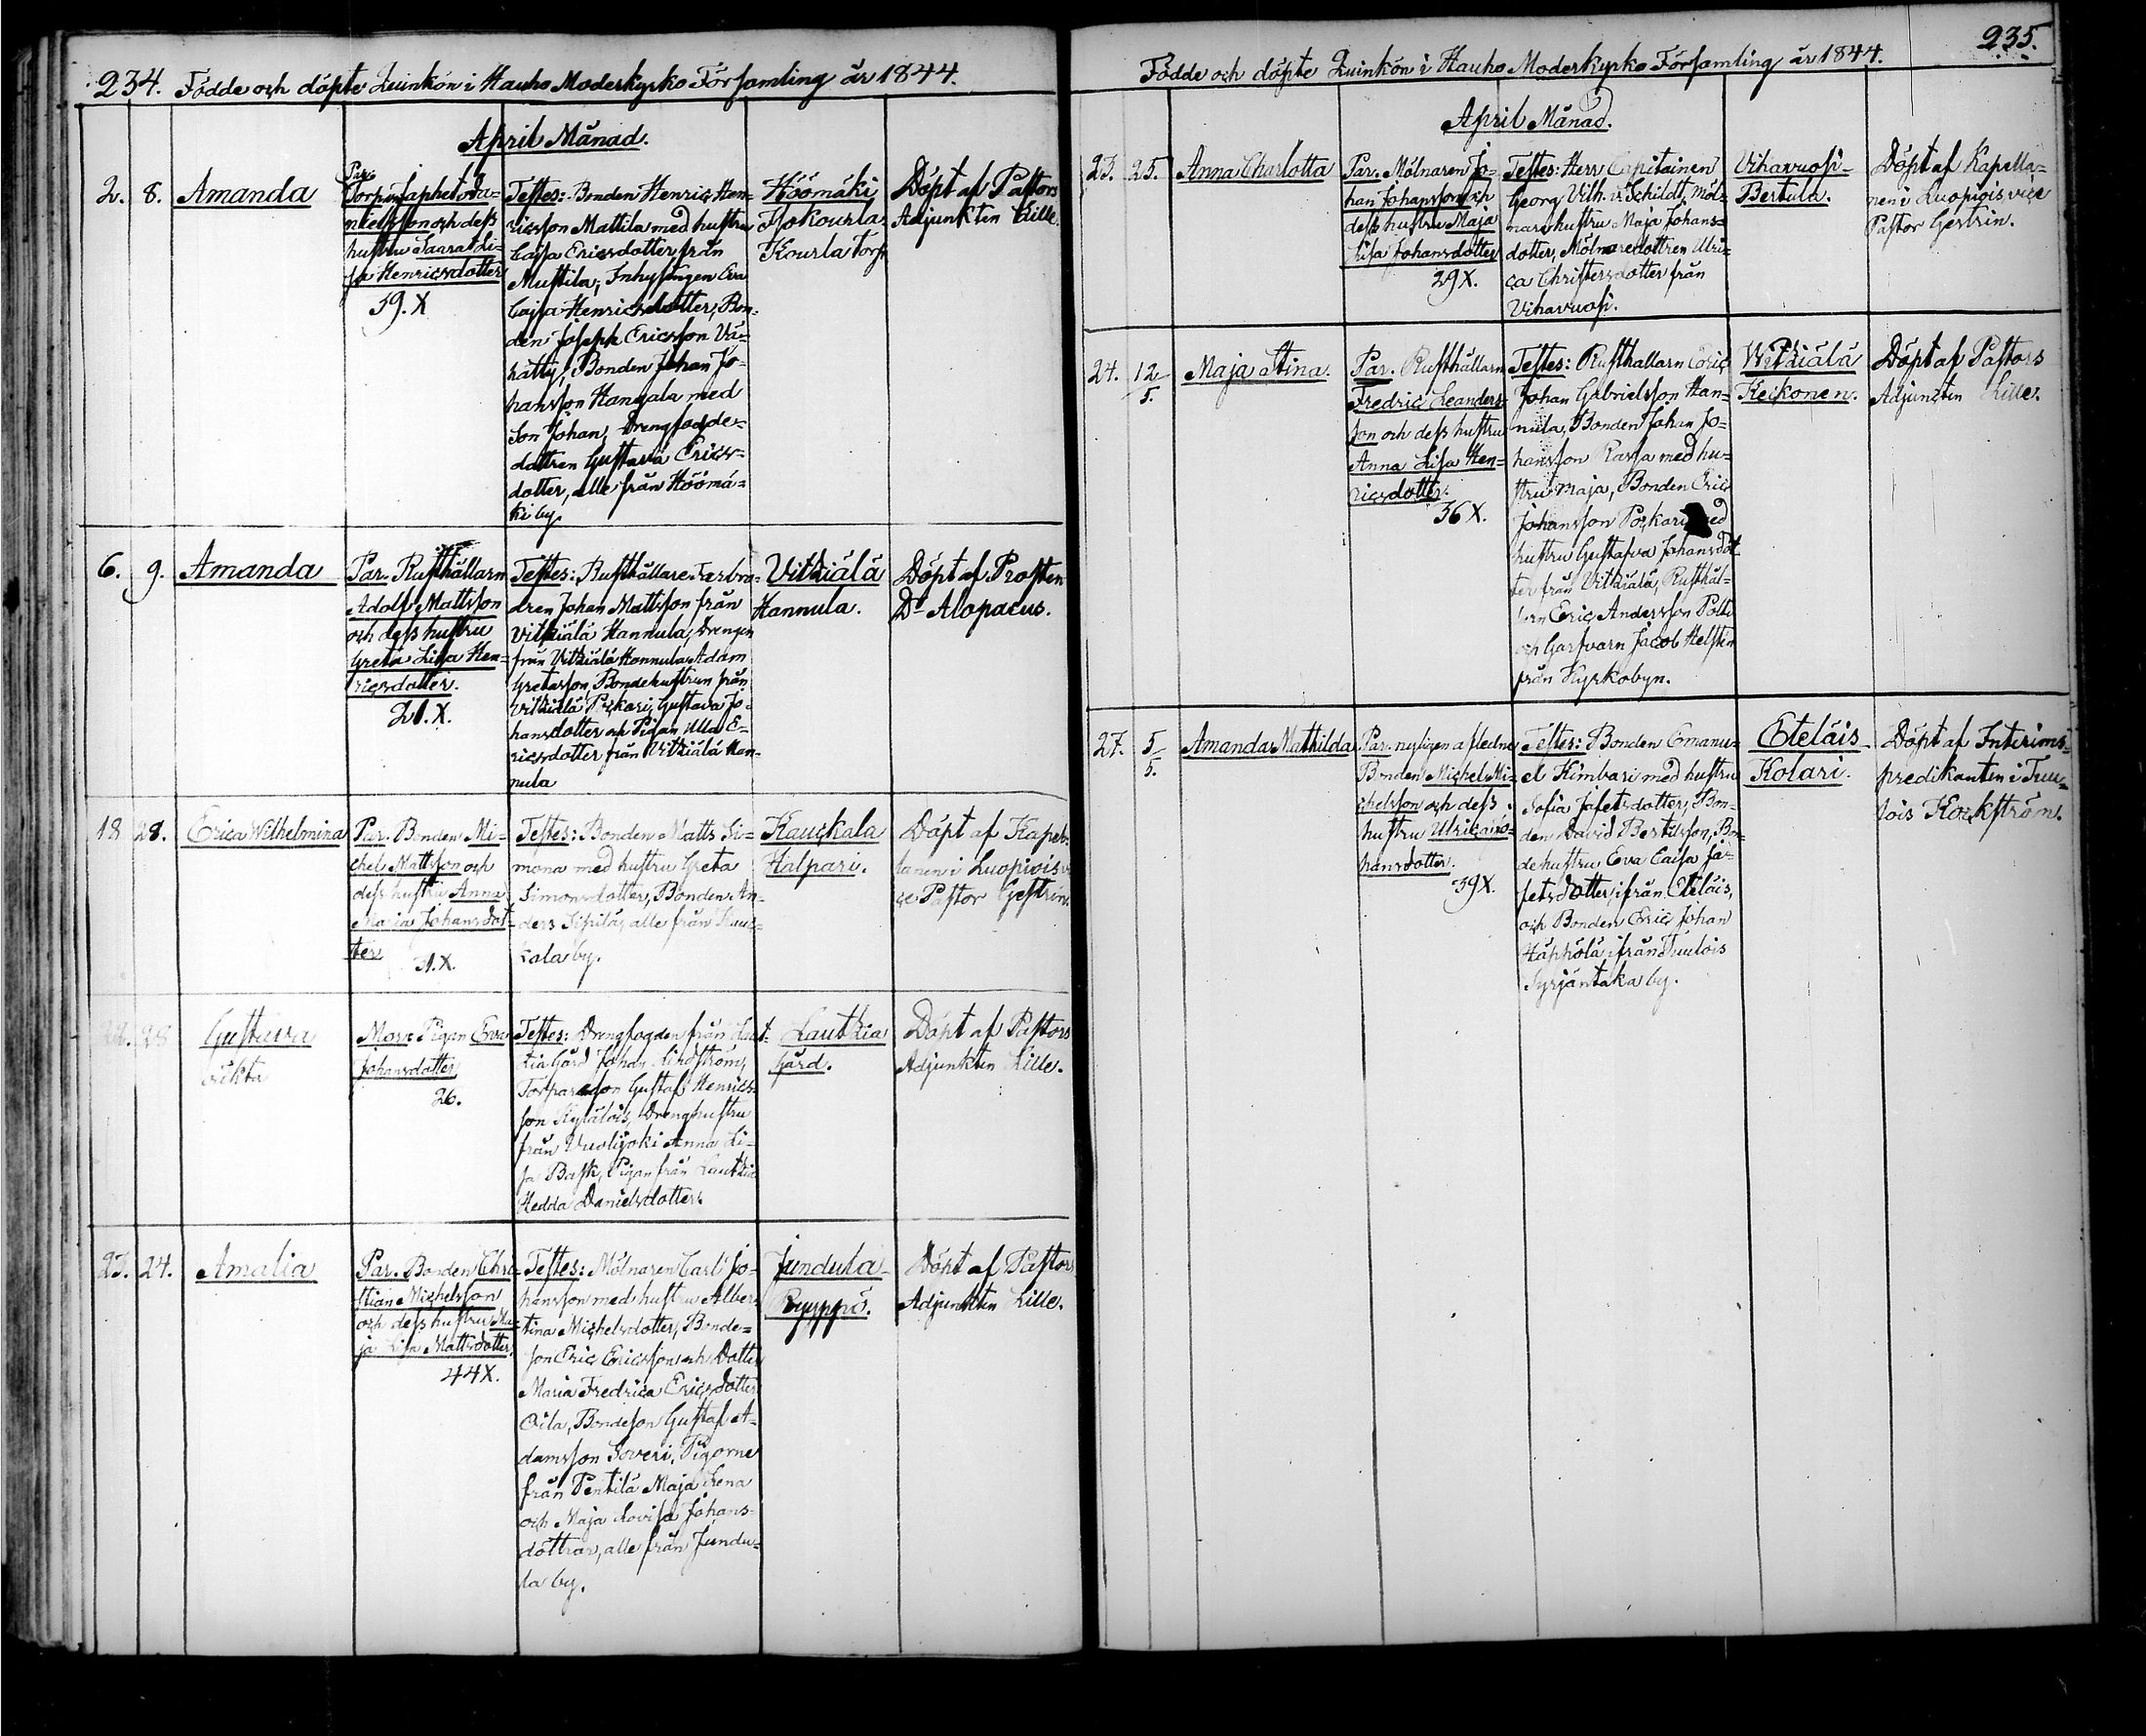 234. Födde och döpte Quinkön i Hauho Moderkyrko Församling år 1844.
April Månad.
2. 8. Amanda
Par.
Torpın Japhet Da-
nielsson och dess
hustru Saara Li-
sa Henricsdotter
39. X
Testes: Bonden Henric Hen-
ricsson Mattila med hustru
Caisa Ericsdotter från
Mustila, Inhysingen Eva
Cajsa Henricsdotter, Bon-
den Joseph Ericsson Vä-
hätty, Bonden Johan Jo-
hansson Hangala med
Son Johan, Drengfogde-
dottren Gustava Erics-
dotter, alle från Höömä-
ki by.
Höömäki
Kourla torp
Döpt af Pastors
Adjunkten Lille.
6. 9. Amanda
Par. Rusthållarn
Adolf Mattsson
och dess hustru
Greta Lisa Hen-
ricsdotter.
21. X.
Testes: Rusthållare Farbro-
dren Johan Mattsson från
Vitkiälä Hannula, Drengen
från Vitkiälä Hannula Adam
Gretasson, Bondehustrun från
Vitkiälä Påckari, Gustava Jo-
hansdotter och Pigan Ulla E-
ricsdotter från Vitkiälä Han-
nula
Vitkiälä
Hannula.
Döpt af Prosten
Dr Alopaeus.
18 28. Erica Wilhelmina
Par. Bonden Mi-
chel Mattsson och
dess hustru Anna
Maria Johansdot-
ter
31. X.
Testes: Bonden Matts Si-
mona med hustru Greta
Simonsdotter, Bonden An-
ders Sipilä, alle från Hauc-
kala by.
Hauckala
Halpari.
Döpt af Kapel-
lanen i Luopiois vi-
ce Pastor Gestrin.
22. 28 Gustava
oäkta
Mor: Pigan Eva
Johansdotter
26.
Testes: Drengfogden från Laut-
kia Gård Johan Lindström,
Torpareson Gustaf Henrics-
son Kyläkois, Drenghustru
från Vuolijoki Anna Li-
sa Bask, Pigan från Lautkia
Hedda Danielsdotter.
Lautkia
gård.
Döpt af Pastors
Adjunkten Lille.
23. 24. Amalia
Par. Bonden Chri-
stian Michelsson
och dess hustru Ma-
ja Lisa Mattsdotter.
44 X.
Testes: Mölnaren Carl Jo-
hansson med hustru Alber-
tina Michelsdotter, Bonde-
son Eric Ericsson och Dotter
Maria Fredrica Ericsdotter
Oila, Bondeson Gustaf A-
damsson Soveri, Pigorne
från Pentilä Maja Lena
och Maja Lovisa Johans-
döttrar, alle från Jundu-
la by.
Jundula
Ryyppö.
Döpt af Pastors
Adjunkten Lille.
235.
Födde och döpte Quinkön i Hauho Moderkyrko Församling år 1844.
April Månad.
23. 25. Anna Charlotta
Par. Mölnaren Jo-
han Johansson och
dess hustru Maja
Lisa Johansdotter
29 X.
Testes: Herr Capitainen
Georg Vilh. v. Schildt, Möl-
nare hustru Maja Johans-
dotter, Mölnaredottren Ulri-
ca Christersdotter från
Vihavuosi.
Vihavuosi-
Bertula.
Döpt af Kapella-
nen i Luopiois vice
Pastor Gestrin.
24. 12/5. Maja Stina.
Par. Rusthållarn
Fredric Leanders-
son och dess hustru
Anna Lisa Hen-
ricsdotter.
36 X.
Testes: Rusthållarn Eric
Johan Gabrielsson Han-
nula, Bonden Johan Jo-
hansson Rassa med hu-
stru Maja, Bonden Eric
Johansson Påckari med
hustru Gustafva Johansdot-
ter från Vitkiälä, Rusthål-
larn Eric Andersson Poltti
och Garfvarn Jacob Helsten
från Kyrkobyn.
Witkiälä
Keikonen.
Döpt af Pastors
Adjuncten Lille.
27. 5/5. Amanda Mathilda
Par. nyligen afledne
Bonden Michel Mi-
chelsson och dess
hustru Ulrica Jo-
hansdotter.
39 X.
Testes: Bonden Emanu-
el Kimbari med hustru
Sofia Jafetsdotter, Bon-
den David Bertilsson, Bon-
dehustru Eva Caisa Ja-
fetsdotter, ifrån Eteläis,
och Bonden Eric Johan
Häphölä ifrån Tuulois
Syrjäntaka by.
Eteläis
Kolari.
Döpt af Interims-
predikanten i Tuu-
lois Kockström.